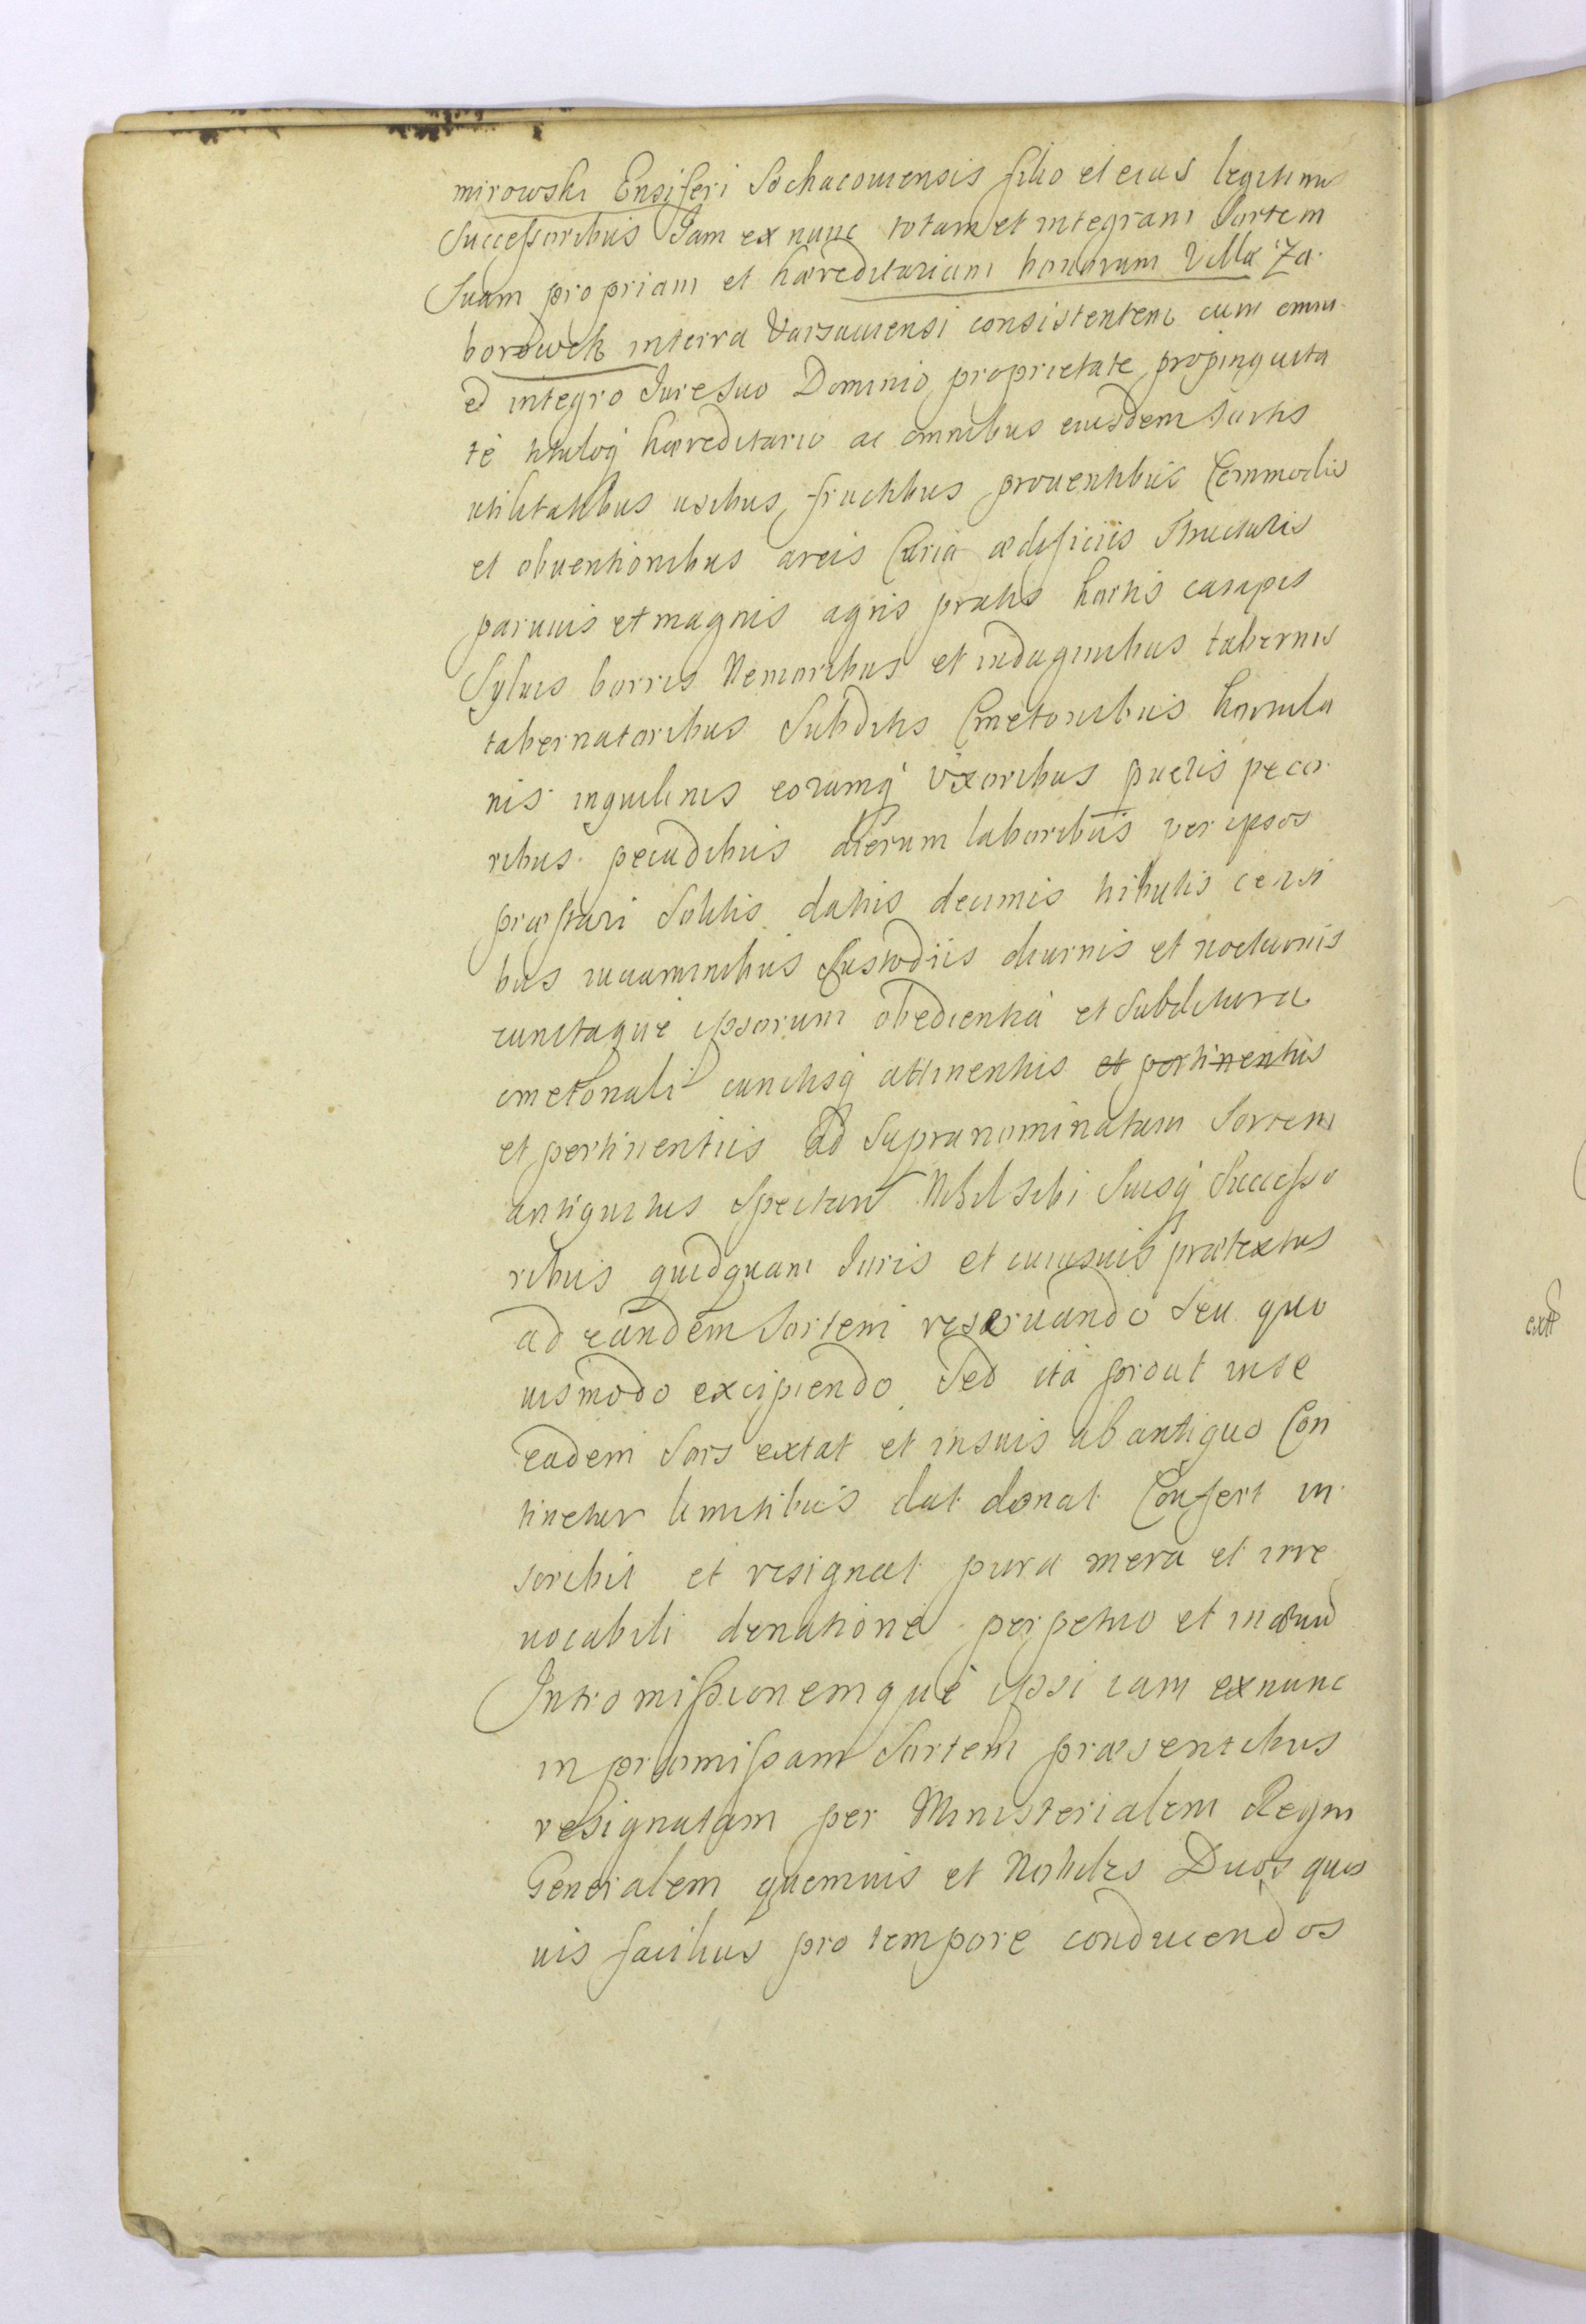 mirowski Ensiferi Sochacouiensis filio et eius legitimis
Successoribus Jam ex nunc totam et integram Sortem
Suam propriam et hæreditariam bonorum Villæ Za
borowek interra Varsauiensi consistentem cum omni
et integro Jure Suo Dominio, proprietate, propinquita
te tituloq hæreditario ac omnibus eiusdem Sortis
utilitatibus usibus, fructibus prouentibus Commodis
et obuentionibus areis Curia ædificiis Structuris
paruuis et magnis agris pratis hortis campis
Syluis borris Nemoribus et indaginibus tabernis
tabernatoribus Subditis Cmetonibus hortula
nis inquilinis eorumq Uxoribus pueris peco
ribus pecudibus dierum laboribus per ipsos
præstari Solitis datiis decimis tributis censi
bus iuuaminibus Custodiis diurnis et nocturnis
cunctaque ipsorum obedientia et Subditura
cmetonali cunctisq attinentiis et pertinentiis
et pertinentiis ad Supranominatam Sortem
antiquitus Spectan Nihil sibi Suisq Successo
ribus quidquam Juris et cuiusuis prætextus
ad eandem Sortem reseruando Seu quo
uismodo excipiendo Sed ita prout in se
eadem Sors extat et in suis ab antiquo Con
tinetur limitibus dat donat Confert in
scribit et resignat pura mera et irre
uocabili donatione perpetuo et in æuum
Intromissionemque ipsi iam ex nunc
in præmissam Sortem præsentibus
resignatam per Ministerialem Regni
Generalem quemuis et Nobiles Duos quos
uis facilius pro tempore conducendos